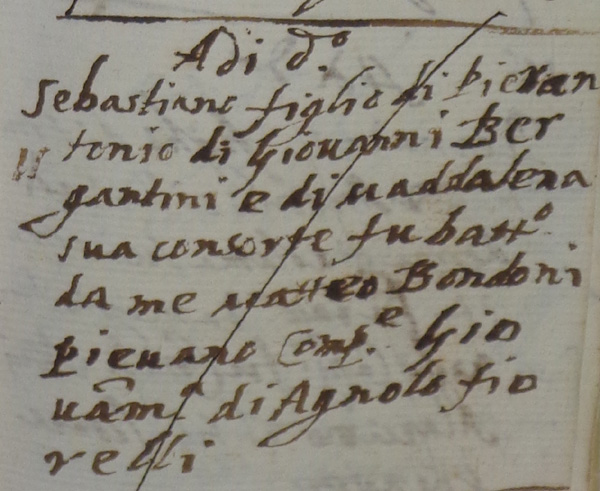 Adi d.º
Sebastiano figlio di Pieran
tonio di Giovanni Ber
gantini e di Maddalena
sua consorte fu batt.º
da me Matteo Bondoni
pievano Comp.e Gio
di Agnolo Fio
relli